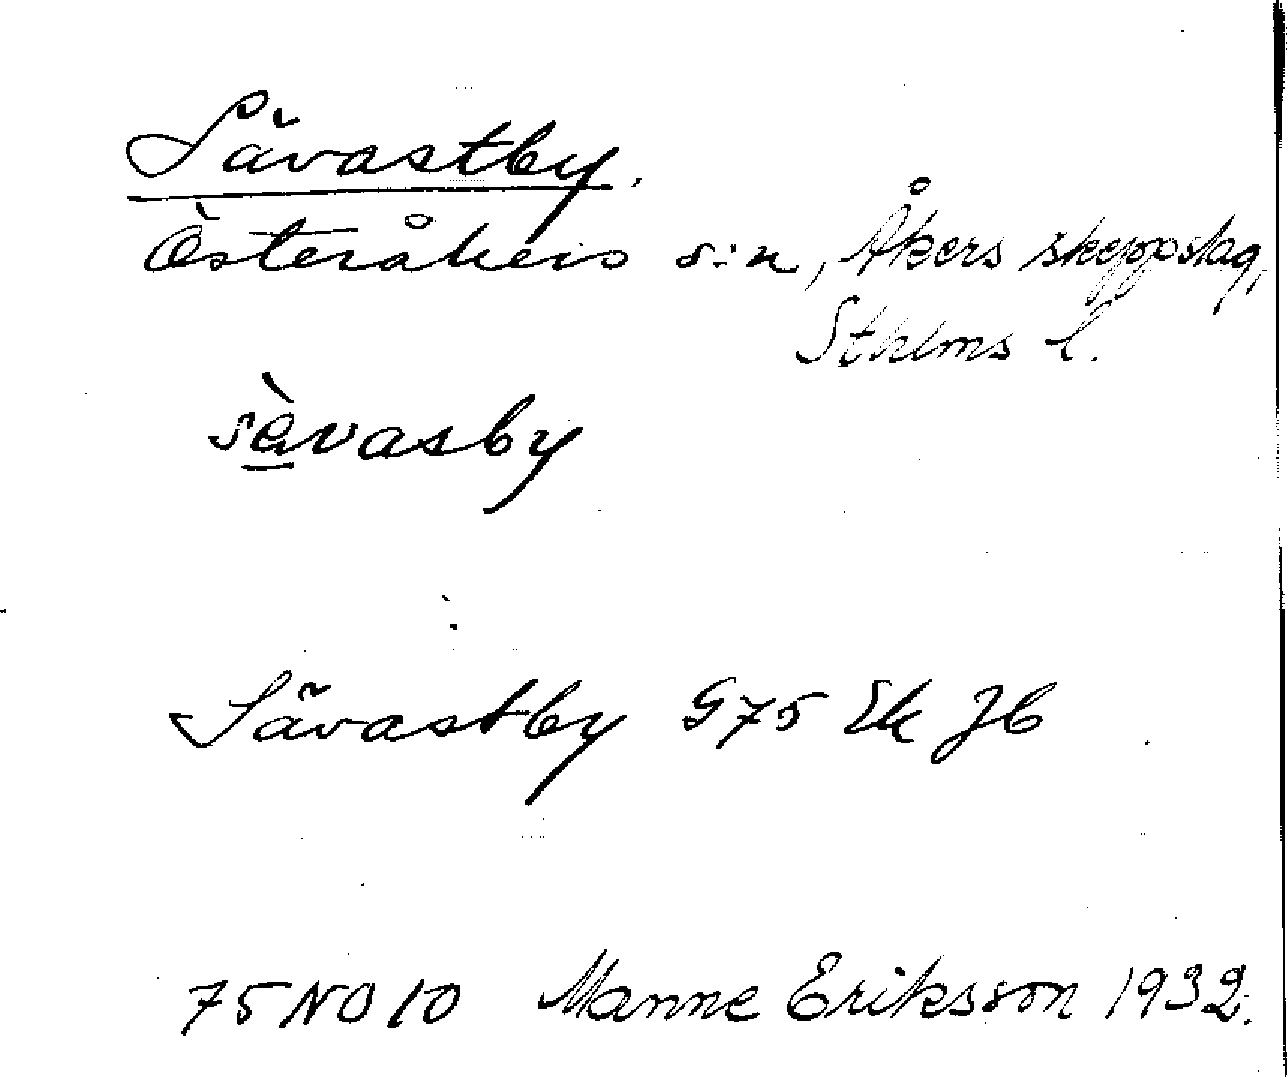 Sävastby.
Österåkers s:n, Åkers skeppslag,
Sthlms l.
sè̱vasby
Sävastby G75 Ek Jb
75 NO 10 Manne Eriksson 1932.